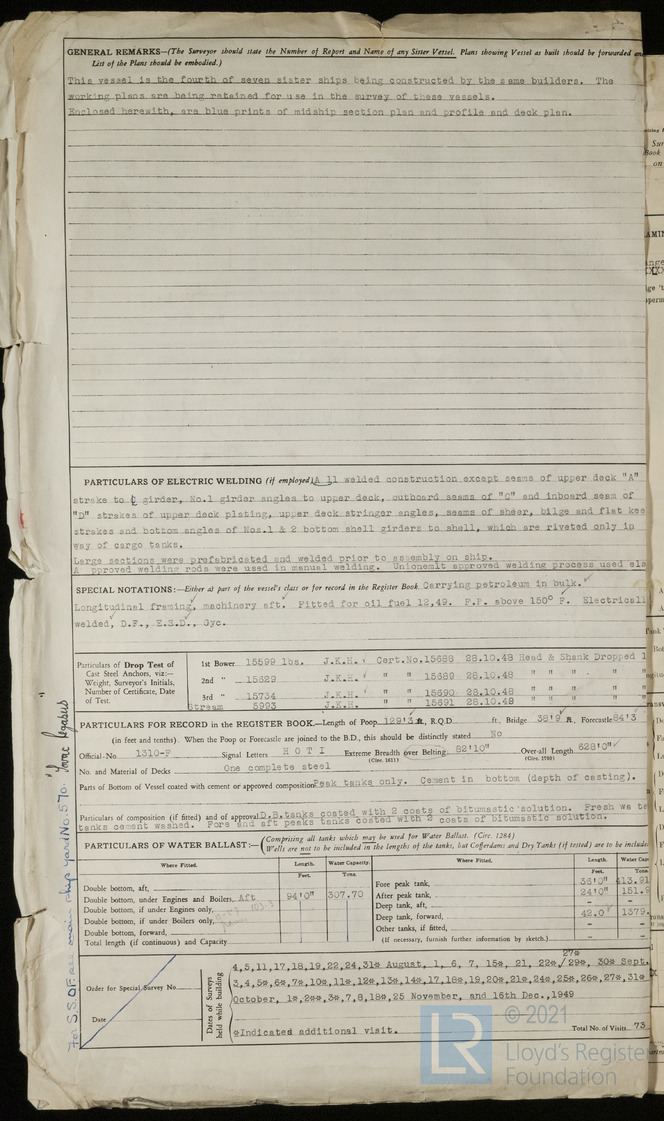 GENERAL REMARKS—(The Surveyor should state the Number of Report and Name of any Sister Vessel. Plans showing Vessel as built should be forwarded
List of the Plans should be embodied.)
This vessel is the fourth of seven sister ships being constructed by the same builders. The
working plans are being retained for use in the survey of these vessels.
Enclosed herewith, are blue prints of midship section plan and profile and deck plan.
PARTICULARS OF ELECTRIC WELDING (if employed) A ll welded construction except seams of upper deck "A"
strake to ₵ girder, No.1 girder angles to upper deck, outboard seams of "C" and inboard seam of
"D" strakes of upper deck plating, upper deck stringer angles, seams of sheer, bilge and flat kee
strakes and bottom angles of Nos.1 & 2 bottom shell girders to shell, which are riveted only in
way of cargo tanks.
Large sections were prefabricated and welded prior to assembly on ship.
A pproved welding rods were used in manual welding. Unionmelt approved welding process used els
SPECIAL NOTATIONS:—Either as part of the vessel's class or for record in the Register Book. Carrying petroleum in bulk.
Longitudinal framing, machinery aft. Fitted for oil fuel 12,49. F.P. above 150° F. Electricall
welded, D.F., E.S.D., Gyc.
Particulars of Drop Test of
Cast Steel Anchors, viz:—
Weight, Surveyor's Initials,
Number of Certificate, Date
of Test.
1st Bower 15599 lbs. J.K.H. Cert.No.15688 28.10.48 Head & Shank Dropped 1
2nd " 15629 " " 15689 28.10.48 " " " "
3rd " 15734 J.K.H. " " 15690 28.10.48 " " " "
Stream 5993 J.K.H. " " 15691 28.10.48 " " " "
PARTICULARS FOR RECORD in the REGISTER BOOK.—Length of Poop 129'3 ft., R.Q.D. ft., Bridge 38'9 ft., Forecastle 84'3
(in feet and tenths). When the Poop or Forecastle are joined to the B.D., this should be distinctly stated No
Official No. 1310-F Signal Letters H O T I Extreme Breadth over Belting 82'10" Over-all Length 628'0"
(Circ. 1611) (Circ. 1700)
No. and Material of Decks One complete steel
Parts of Bottom of Vessel coated with cement or approved composition Peak tanks only. Cement in bottom (depth of casting).
Particulars of composition (if fitted) and of approval D.B. tanks coated with 2 coats of bitumastic solution. Fresh wa te
tanks cement washed. Fore and aft peaks tanks coated with 2 coats of bitumastic solution.
PARTICULARS OF WATER BALLAST:— (Comprising all tanks which may be used for Water Ballast. (Circ. 1284)
Wells are not to be included in the lengths of the tanks, but Cofferdams and Dry Tanks (if tested) are to be include
Where Fitted. Length. Water Capacity. Where Fitted. Length. Water Cap
Feet. Tons. Feet. Tons.
Double bottom, aft, Fore peak tank, 36'0" 413.91
Double bottom, under Engines and Boilers, Aft 94'0" 307.70 After peak tank, 24'0" 151.9
Double bottom, if under Engines only, Deep tank, aft, –
Double bottom, if under Boilers only, Deep tank, forward, 42.0' 1379.
Double bottom, forward, Other tanks, if fitted, – –
Total length (if continuous) and Capacity (If necessary, furnish further information by sketch.) – –
Order for Special Survey No.
Date
Dates of Surveys
held while building
27*
4,5,11,17,18,19,22,24,31* August, 1, 6, 7, 15*, 21, 22*/29*, 30* Sept.
3,4,5*,6*,7*,10*,11*,12*,13*,14*,17,18*,19,20*,21*,24*,25*,26*,27*,31*
October, 1*,2**,3*,7,8,18*,25 November, and 16th Dec.,1949
*Indicated additional visit.
Total No. of Visits 73
For S.S. OF
ship yard No. 570.
Pegasus"
LR
© 2021
Lloyd's Registe
Foundation